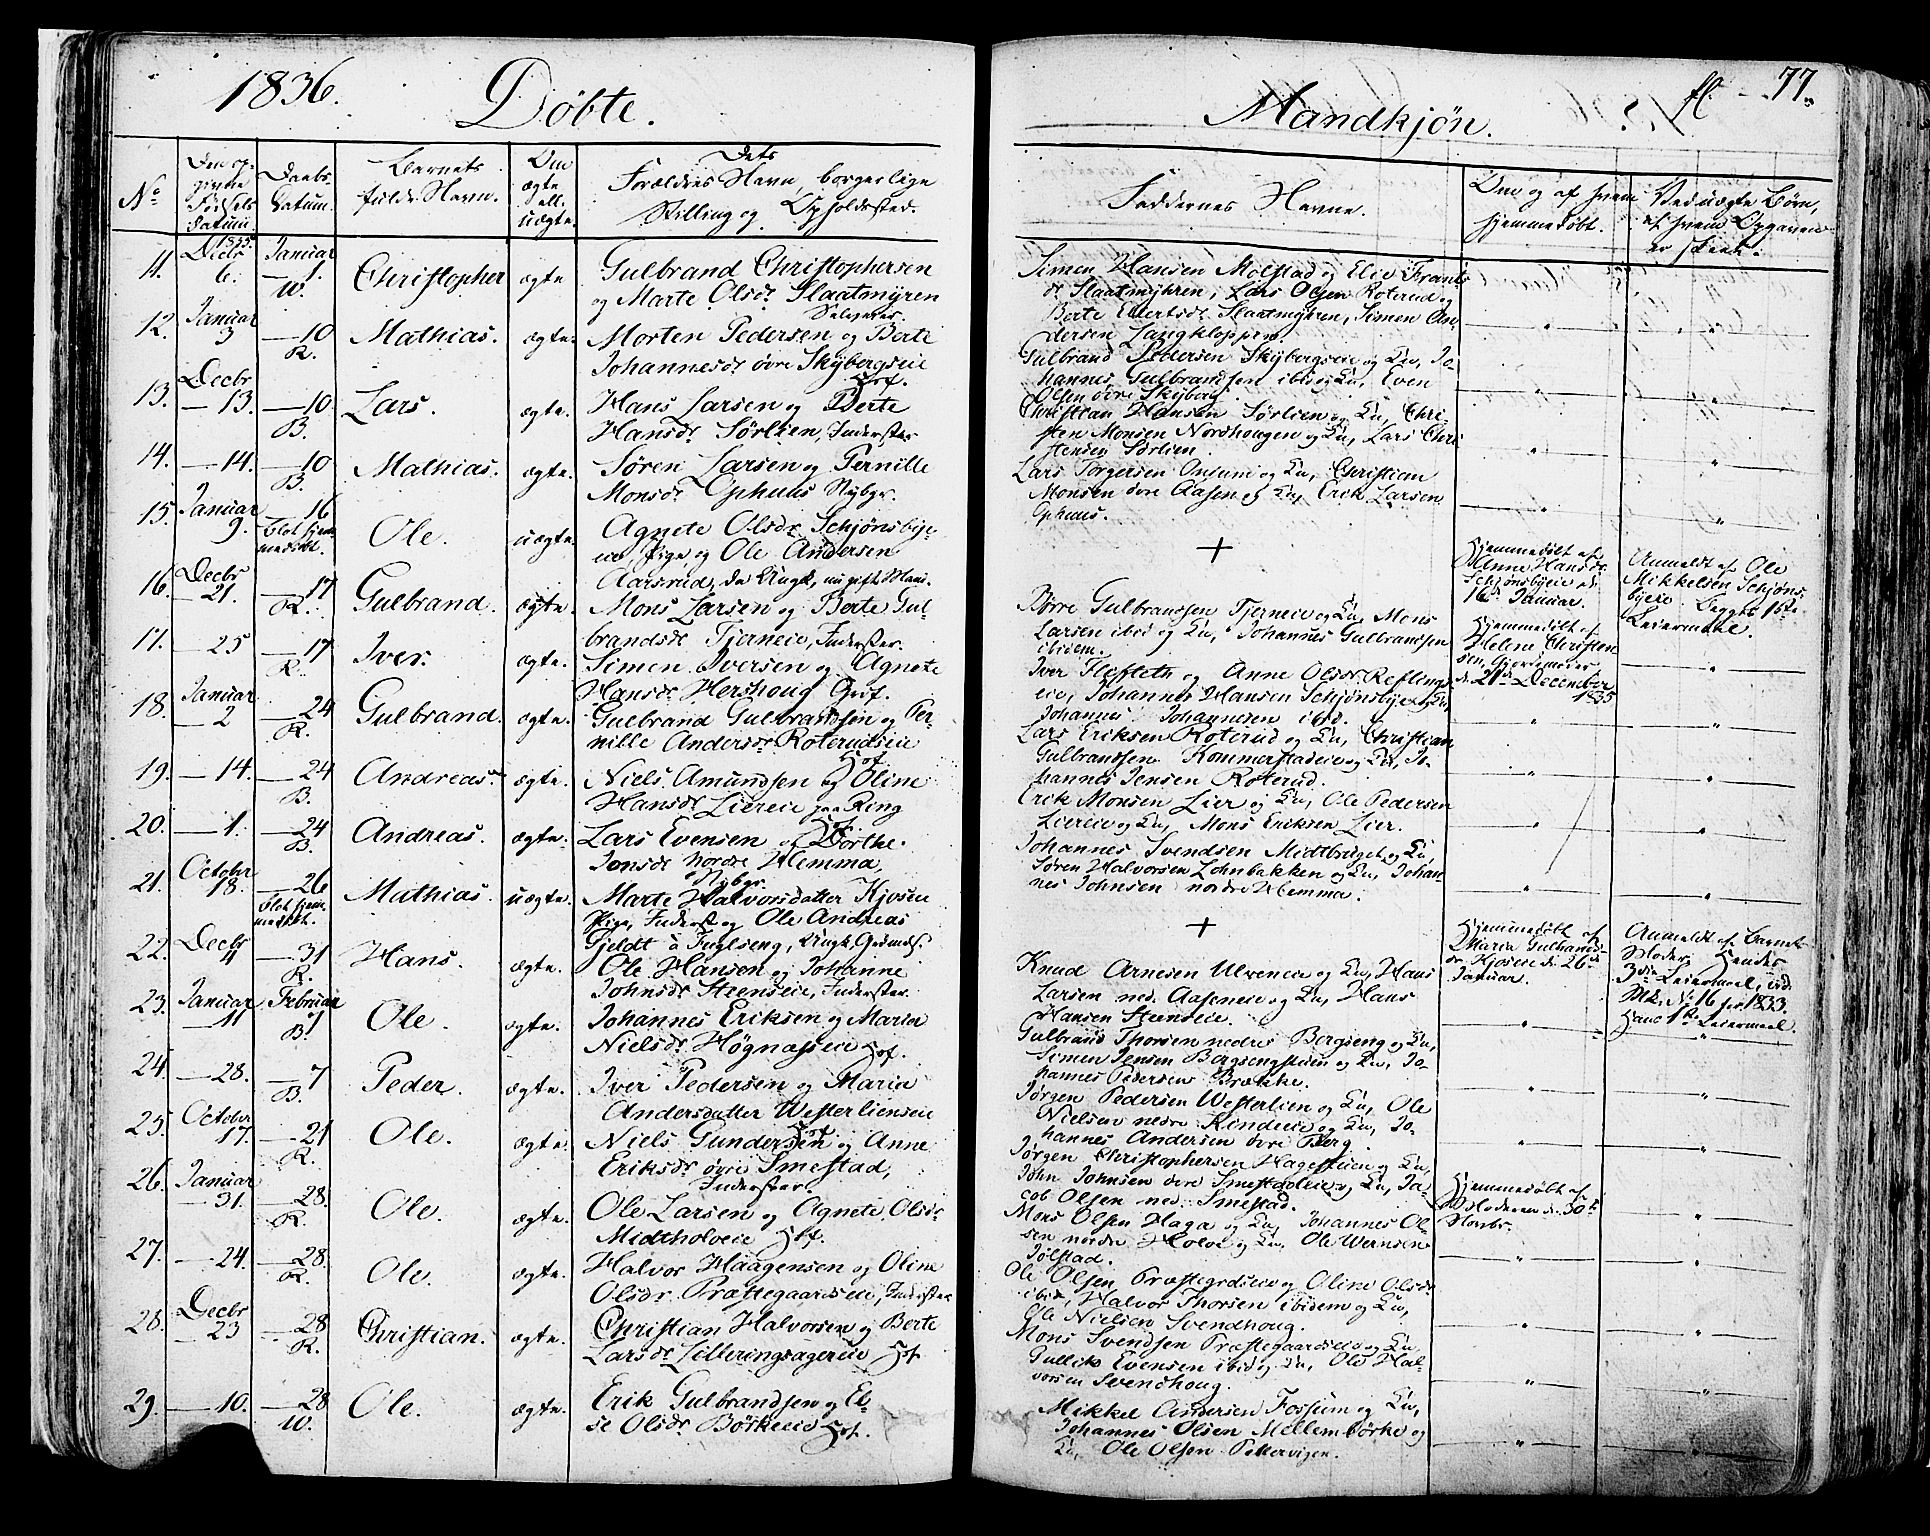 1836. Døbte.
Mandkjøn. fl. 77.
No
Den op-
givne
Fødsels
Datum.
Daabs-
Datum.
Barnets
fulde Navn.
Om
ægte
ell.
uægte
Dets
Forældres Navn, borgerlige
Stilling og Opholdssted.
Faddernes Navne.
Om og af hvem
hjemmedøbt.
Ved uægte Børn,
af hvem Opgaven
er skeet.
11. 1835. Decbr 6. Januar 1. W. Christopher ægte
Gulbrand Christophersen
og Marte Olsdr Slaatmyren
Selveier.
Simen Hansen Molstad og Elie Frants
dr Slaatmyhren, Lars Olsen Roterud og
Berte Evertsdr Slaatmyhren, Simen An-
dersen Langkloppen.
12. Januar 3 10 R. Mathias. ægte.
Morten Pedersen og Berte
Johannesdr øvre Skybergseie
Hsf.
Gulbrand Pedersen Skybergseie og Ku, Jo-
hannes Gulbrandsen ibid og Ku, Even
Olsen øvre Skyberg.
13. Decbr 13. 10 B. Lars. ægte.
Hans Larsen og Berte
Hansdr Sørlien, Inderster
Christian Hansen Sørlien og Ku, Chri-
sten Monsen Nordhougen og Ku, Lars Chri
stensen Sørlien.
14. 14. 10 B. Mathias. ægte.
Søren Larsen og Pernille
Monsdr Ophuus Nybgr.
Lars Torgersen Onsum og Ku, Christian
Monsen øvre Aasen og Ku, Erik Larsen
Ophuus.
15. Januar 9. 16 blot hjem
medøbt. Ole. uægte.
Agnete Olsdr Schjønsbye-
eie Pige, og Ole Andersen
Aarsrud, da Ungk, nu gift Man.
+
Hjemmedøbt af
Anne Hansdr
Schjønsbyeie d.
16d Januar.
Anmeldt af Ole
Mikkelsen Schjøns-
byeie. Begges 1ste
Leiermaal.
16. Decbr 21. 17 R. Gulbrand. ægte.
Mons Larsen og Berte Gul-
brandsdr Tjerneie, Inderster.
Børre Gulbrandsen Tjerneie og Ku, Mons
Larsen ibid og Ku, Johannes Gulbrandsen
ibidem.
Hjemmedøbt af
Helene Christen
sen, Gjordemoder
d. 21de December
1835
17. 25 17 R. Iver. ægte.
Simen Iversen og Agnete
Hansdr Hershoug Grdf.
Iver Flesleth og Anne Olsdr Reflings-
eie, Johannes Hansen Schjønsbye og Ku
Johannes Johannesen ibid.
18. Januar 2 24 R. Gulbrand. ægte.
Gulbrand Gulbrandsen og Per-
nille Andersdr Roterudseie
Hsf.
Lars Eriksen Roterud og Ku, Christian
Gulbrandsen Kommerstadeie og Ku, Jo-
hannes Jensen Roterud.
19. 14. 24 B. Andreas. ægte.
Niels Amundsen og Oline
Hansdr Liereie paa Ring
Hsf.
Erik Monsen Lier og Ku, Ole Pedersen
Liereie og Ku, Mons Eriksen Lier.
20. 1. 24 B. Andreas. ægte.
Lars Evensen og Dorthe
Jonsdr Nordre Hemma,
Nybgr.
Johannes Svendsen Midtbruget og Ku,
Søren Halvorsen Lohnbakken og Ku, Johan-
nes Johnsen nordre Hemma.
21. Octobr 18. 26 blot hjem
medøbt. Mathias. uægte.
Marte Halvorsdatter Kjoseie
Pige, Inderst og Ole Andreas
Gjeldt à Fuglseng, Ungk, Grændsf.
+
Hjemmedøbt af
Maria Gulbrands-
dr Kjoseie d. 26de
Januar.
Anmeldt af Barnets
Moder, Hendes
3die Leiermaal, vid.
Mk. No 16 for 1833.
Hans 1ste Leiermaal.
22. Decbr 11 31 R. Hans. ægte.
Ole Hansen og Johanne
Johnsdr Steenseie, Inderster.
Knud Arnesen Ulveneie og Ku, Hans
Larsen ned. Aaseneie og Ku, Hans
Hansen Steenseie.
23. Januar 11 Februar 1 B. Ole. ægte.
Johannes Eriksen og Maria
Nielsdr Høgnæsseie Hsf.
Gulbrand Thorsen nedre Bergseng og Ku,
Simen Jensen Bergsengstuen og Ku, Jo-
hannes Pedersen Brække.
24. 28. 7 B. Peder. ægte.
Iver Pedersen og Maria
Andersdatter Westerlienseie
Hsf.
Jørgen Pedersen Westerlien og Ku, Ole
Nielsen nedre Rindeie og Ku, Jo-
hannes Andersen øvre Berg.
25. October 17. 21 R. Ole. ægte.
Niels Gundersen og Anne
Eriksdr øvre Smestad,
Inderster.
Jørgen Christophersen Hagestuen og Ku,
John Johnsen øvre Smestadeie og Ku, Ja-
cob Olsen ned: Smestad.
Hjemmedøbt af
Moderen d. 30te
Novbr.
26. Januar 31. 28. R. Ole. ægte.
Ole Larsen og Agnete Olsdr
Midtholveie Hsf.
Mons Olsen Haga og Ku, Johannes Ol-
sen nordre Holve og Ku, Ole Wernsen
Jølstad.
27. 24. 28. R. Ole. ægte.
Halvor Haagensen og Oline
Olsdr Præstegaardseie, Inderster
Ole Olsen Præstegrdseie og Oline Olsdr
ibid, Halvor Thorsen ibidem og Ku,
Ole Nielsen Svendhoug.
28. Decbr 23 28 R. Christian. ægte.
Christian Halvorsen og Berte
Larsdr Lilleringsagereie Hsf
Mons Svendsen Præstegaardseie og Ku
Gullik Evensen ibid og Ku, Ole Hal-
vorsen Svendhoug.
29. 10. 28 W. Ole. ægte.
Erik Gulbrandsen og El-
se Olsdr Børkeeie Hsf.
Mikkel Andersen Fossum og Ku,
Johannes Olsen Mellem Børke og
Ku, Ole Olsen Pettervigen.